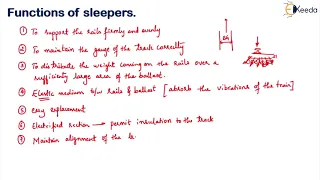 Functions of sleepers.
Ekeeda
① To support the rails firmly and evenly
② To maintain the gauge of the track correctly
③ To distribute the weight coming on the rails over a
sufficiently large area of the ballast.
④ Elastic medium b/w rails & ballast [absorb the vibrations of the train]
⑤ Easy replacement
⑥ Electrified section → permit insulation to the track
⑦ Maintain alignment of the